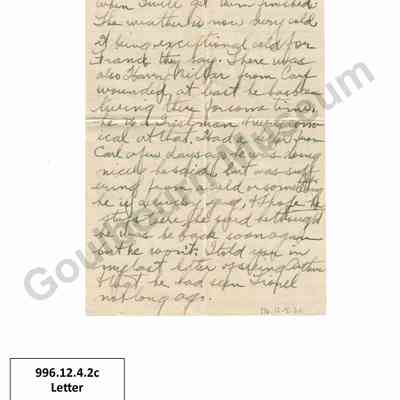 when I will get them finished
The weather is now very cold
It being exceptional cold for
France they say. There was
also Harry from
wounded, at last he has been
living there for some time,
he is a Irishman & very com-
ical at that. Had a letter from
Carl a few days ago he was doing
nicely he said, but was suff-
ering from a cold or something
he is a lucky guy, & I hope he
stays there. He said he thought
he was be back soon again
but he won't. I told you in
my last letter of seeing Arthur
& that he had seen Lionel
not long ago.
996.12.4.2c
Goulds Museum
996.12.4.2c
Letter